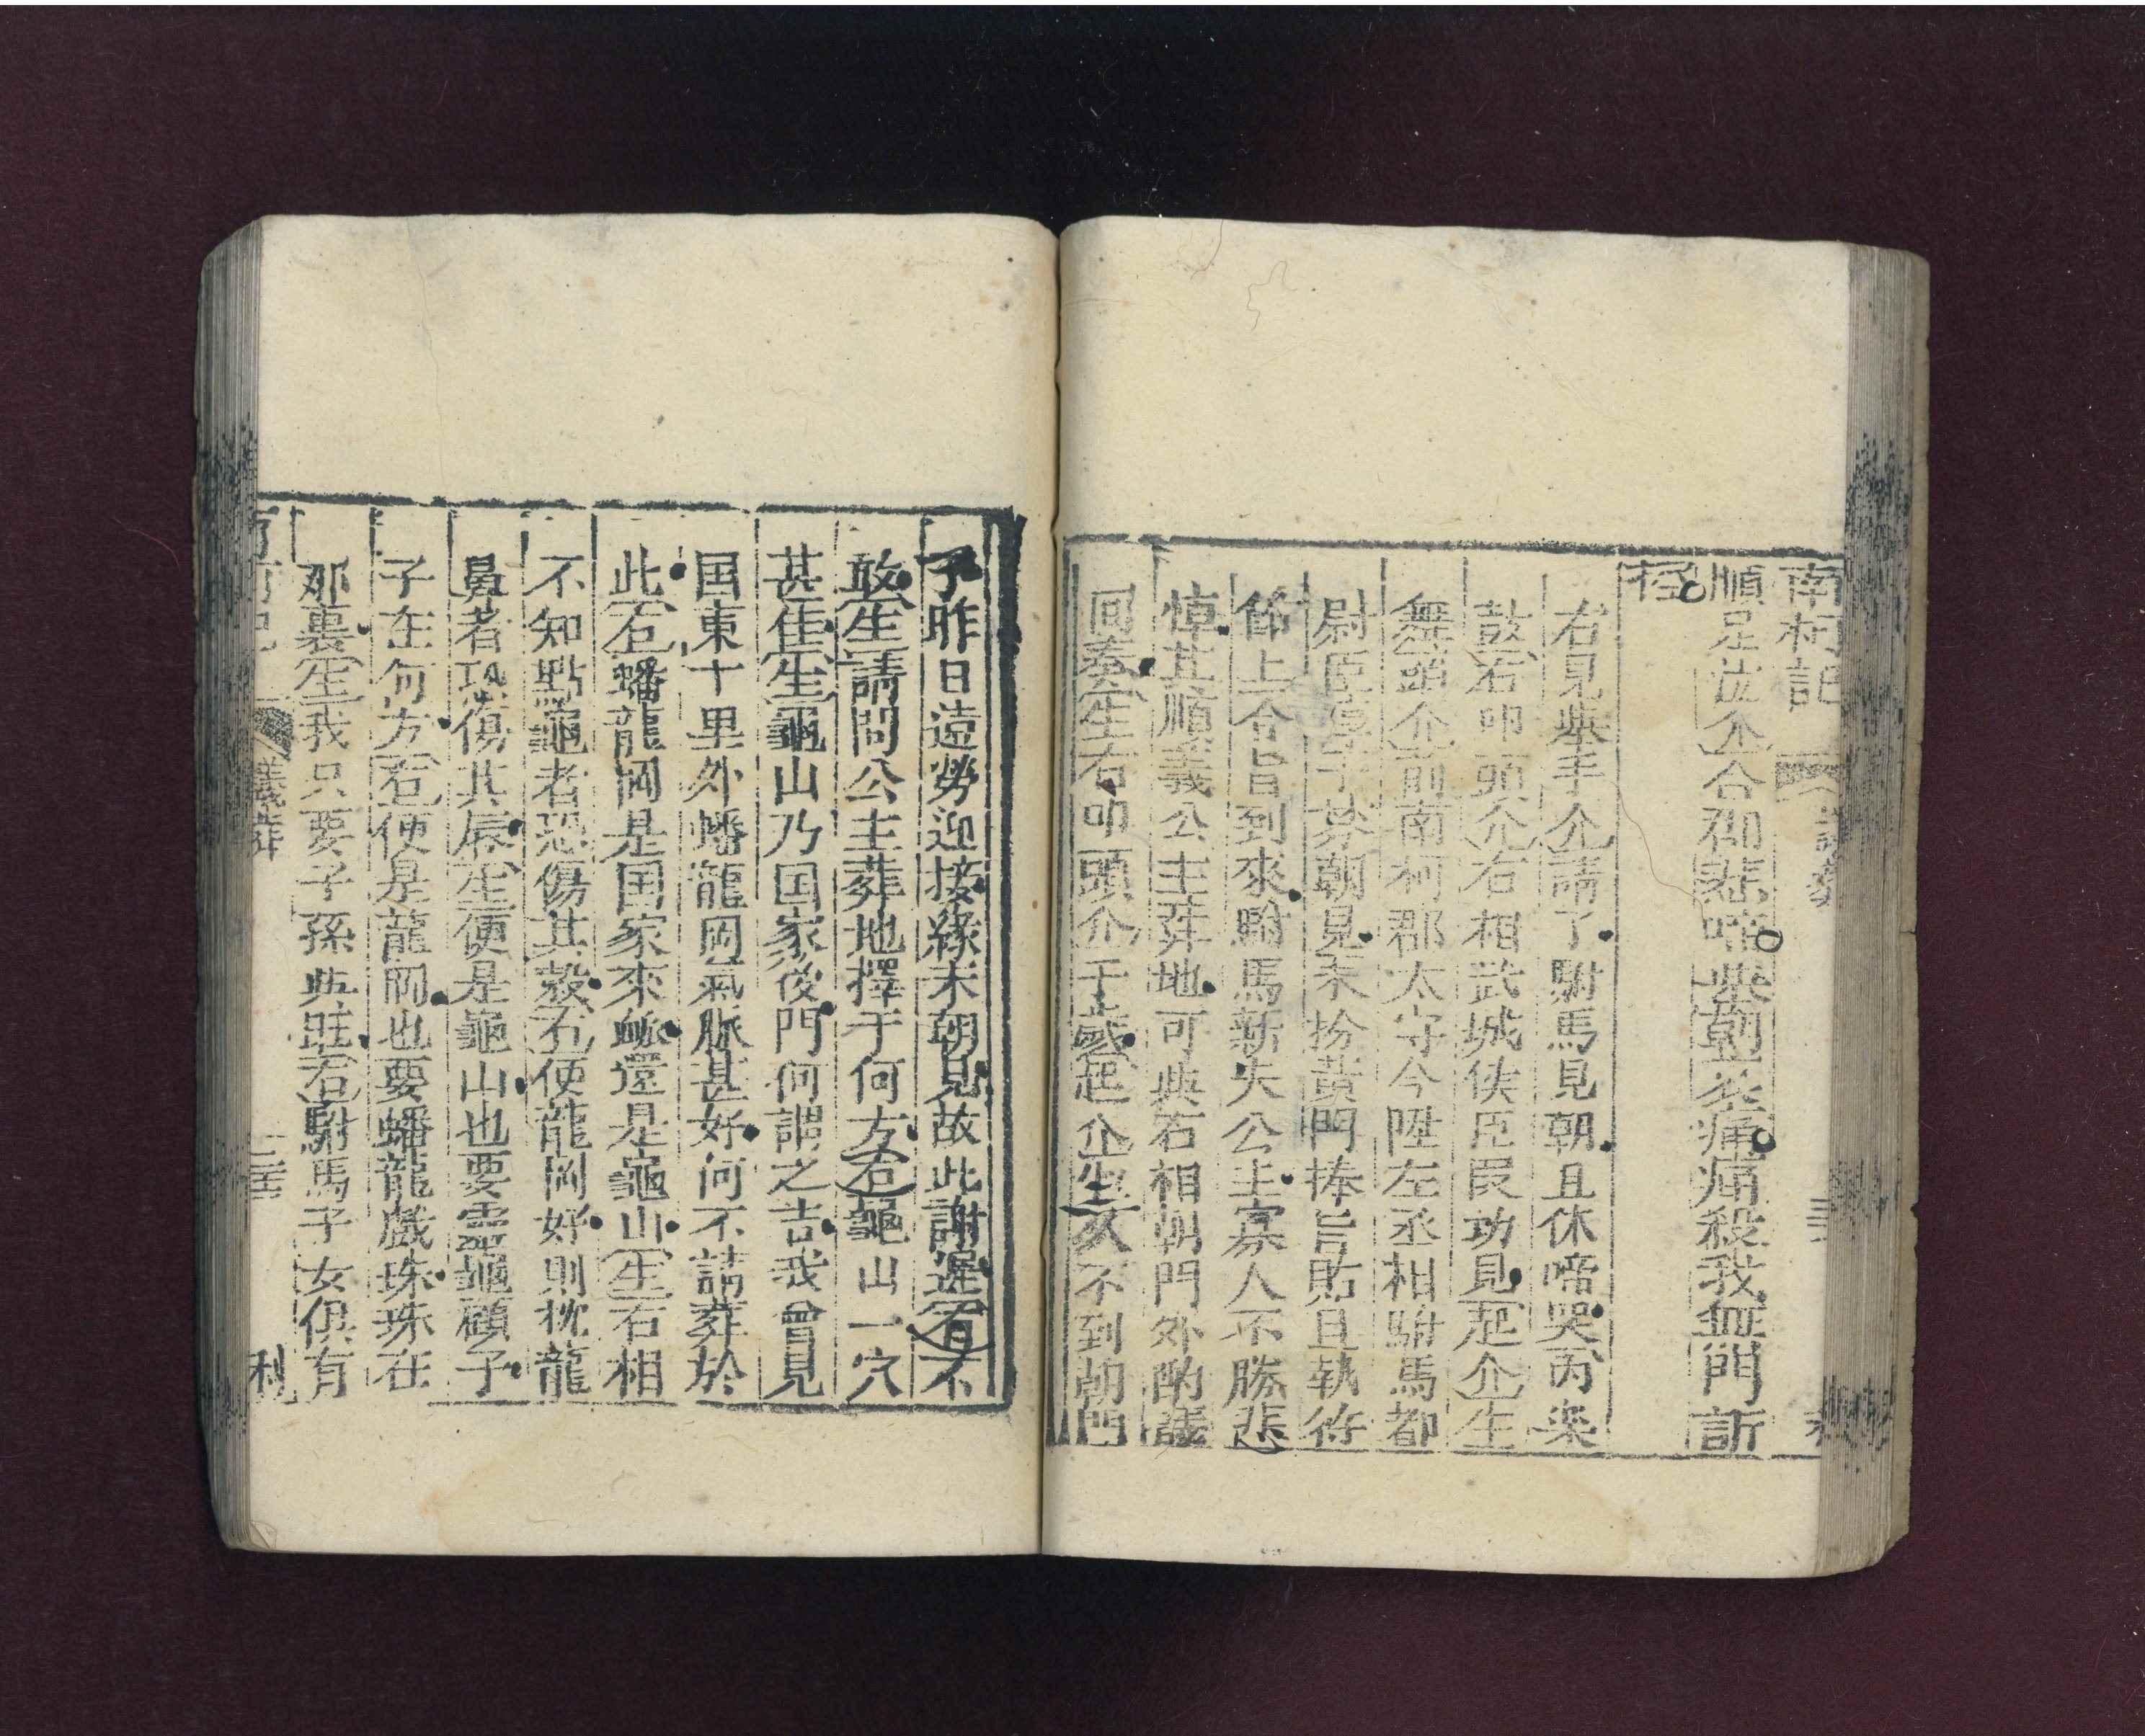 南柯記
順足泣介合郡悲啼舉朝哀痛痛殺我無門訴
控
右見舉手介請了駙馬見朝且休啼哭內樂
鼓右叩頭介右相武城侯臣段功見起介生
舞蹈介前南柯郡太守今陞左丞相駙馬都
尉臣淳于棼朝見末扮黃門捧旨貼且執符
節上令旨到來駙馬新失公主寡人不勝悲
悼其順義公主葬地可與右相朝門外酌議
回奏生右叩頭介千歲起介生久不到朝門
了昨日遠勞迎接緣未朝見故此謝遲右不
敢生請問公主葬地擇于何方右龜山一穴
甚佳生龜山乃国家後門何謂之吉我曾見
国東十里外蟠龍岡氣脉甚好何不請葬於
此右蟠龍岡是国家來脈還是龜山生右相
不知點龜者恐傷其殼右便龍岡好則枕龍
鼻者恐傷其唇生便是龜山也要靈龜顧子
子在何方右便是龍岡也要蟠龍戲珠珠在
那裏生我只要子孫興旺右駙馬子女俱有
利